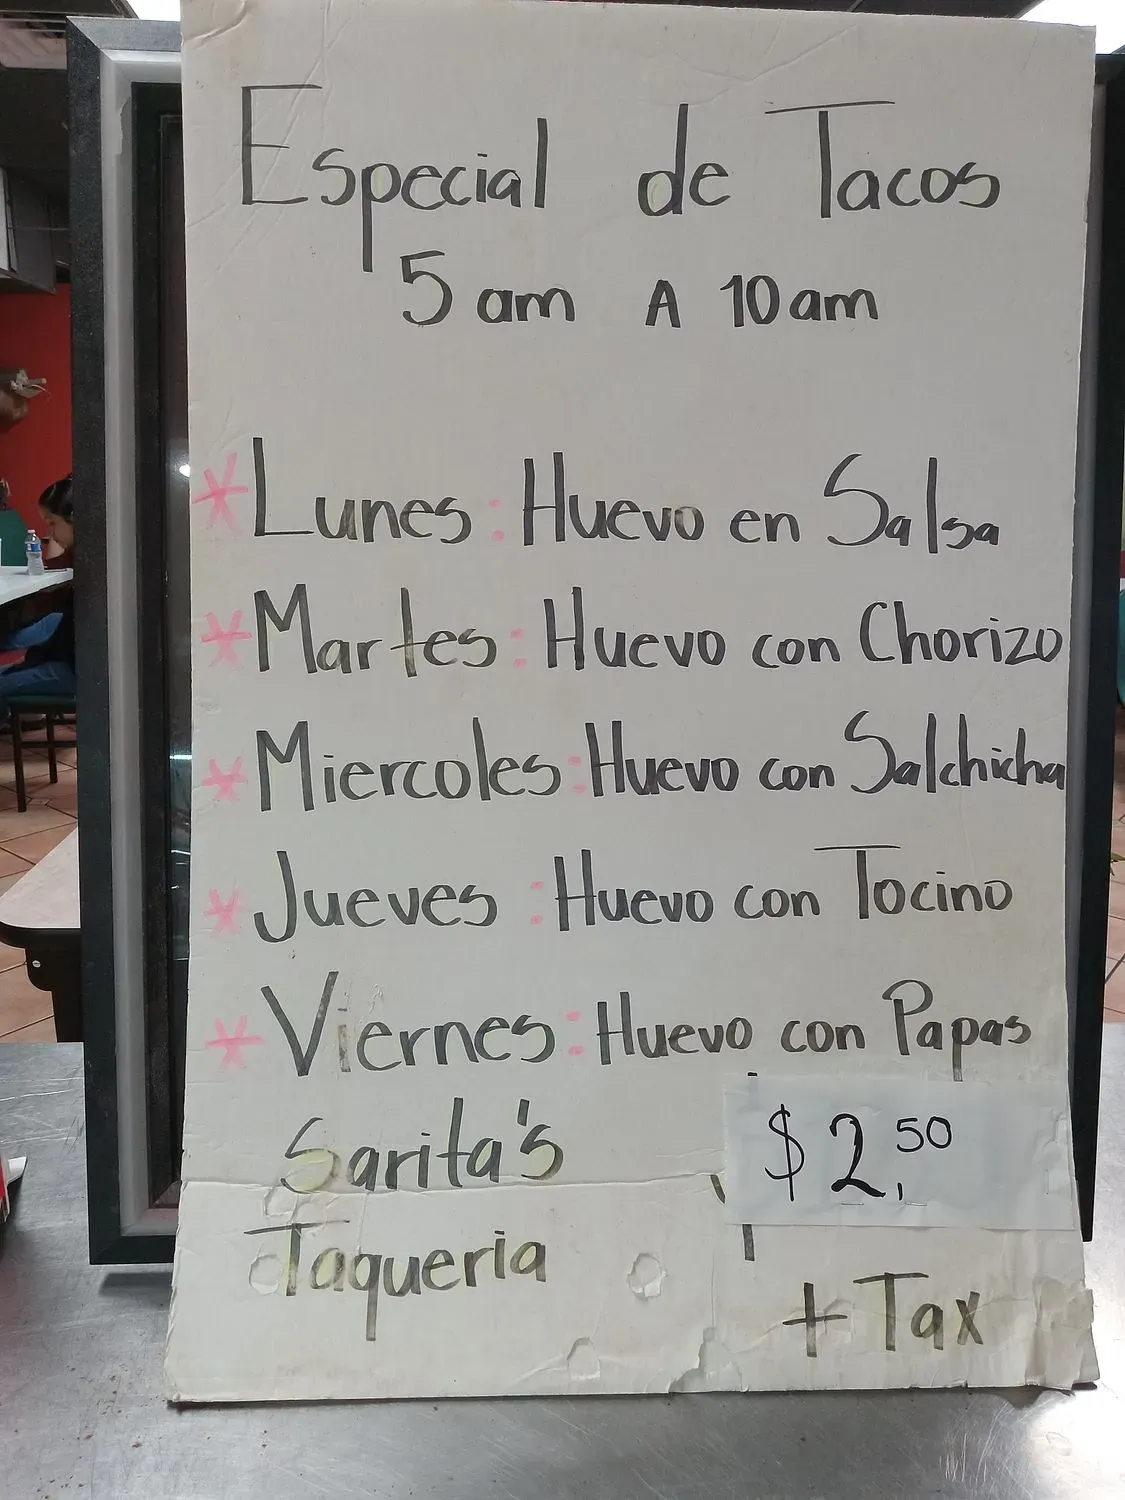 Especial de Tacos
5 am A 10 am
* Lunes : Huevo en Salsa
* Martes : Huevo con Chorizo
* Miercoles : Huevo con Salchicha
* Jueves : Huevo con Tocino
* Viernes : Huevo con Papas
Sarita's
Taqueria
$ 2,50
+ Tax